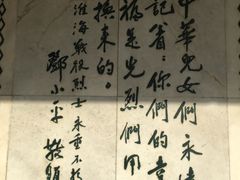 中華兒女們永遠
記着：你們的幸
福是先烈們用
換來的。
淮海戰役烈士永垂不朽
鄧小平 敬題